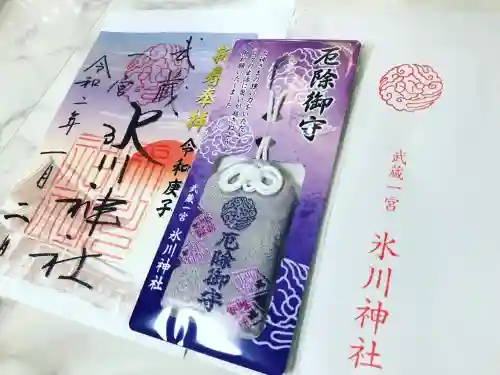 武蔵
一宮
氷川神社
令和二年
一月二日
新春奉拝
令和庚子
厄除御守
武蔵一宮 氷川神社
厄除御守
武蔵一宮 氷川神社